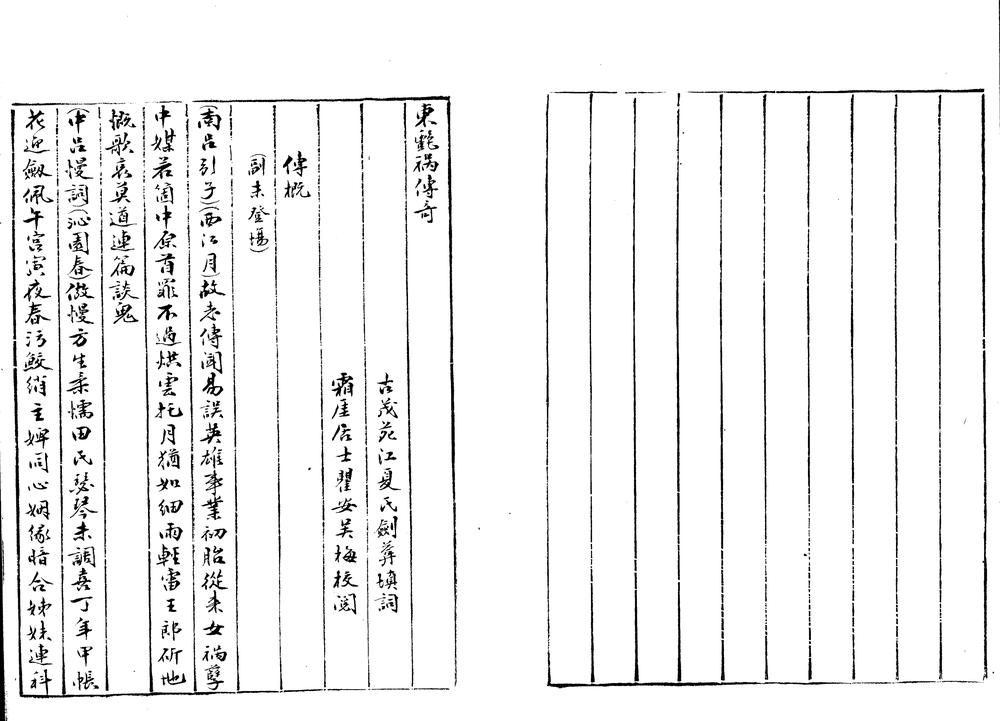 東乿禍傳奇
古茂苑江夏氏劍葬填詞
霜厓居士瞿安吴梅校閱
傳概
(副末登場)
(南呂引子)(西江月)故老傳聞易誤英雄事業初胎從來女禍孽
中媒若箇中原首罪不過烘雲托月猶如細雨輕雷王郎斫地
慨歌哀莫道連篇談鬼
(中呂慢詞)(沁園春)傲慢方生柔懦田氏瑟琴未調喜丁年甲帳
花迎劔佩午宮寅夜春污鮫綃主婢同心姻緣暗合姊妹連科